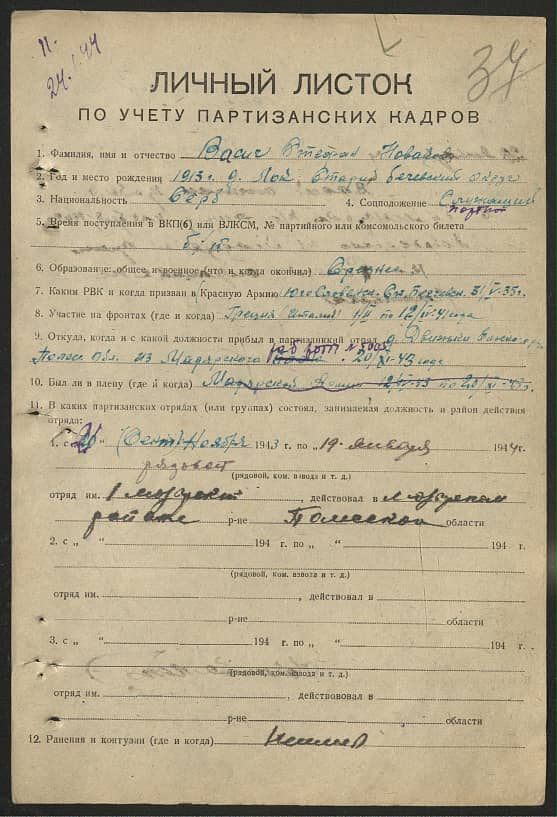 24.1.44
37
ЛИЧНЫЙ ЛИСТОК
ПО УЧЕТУ ПАРТИЗАНСКИХ КАДРОВ
1. Фамилия, имя и отчество Васич Стефан
2. Год и место рождения 1913 г. д. Лок, Старый Бечевский округ
3. Национальность Серб 4. Соцположение Служащий
5. Время поступления в ВКП(б) или ВЛКСМ, № партийного или комсомольского билета
б/п
6. Образование: общее и военное (что и когда окончил) Среднее
7. Каким РВК и когда призван в Красную Армию Югославск.
8. Участие на фронтах (где и когда) Греция (Италия)
9. Откуда, когда и с какой должности прибыл в партизанский отряд
Полес. Обл. из Мадярского 20/XI-43 года
10. Был ли в плену (где и когда) Мадярской Армии
11. В каких партизанских отрядах (или группах) состоял, занимаемая должность и район действия
отряда:
1. с „20“ Ноября 1943 г. по „19“ января 1944 г.
рядовой
(рядовой, ком. взвода и т. д.)
отряд им. 1 , действовал в
районе р-не Полесской области
2. с „ “ 194 г. по „ “ 194 г.
(рядовой, ком. взвода и т. д.)
отряд им. , действовал в
р-не области
3. с „ “ 194 г. по „ “ 194 г.
(рядовой, ком. взвода и т. д.)
отряд им. , действовавал в
р-не области
12. Ранения и контузии (где и когда)